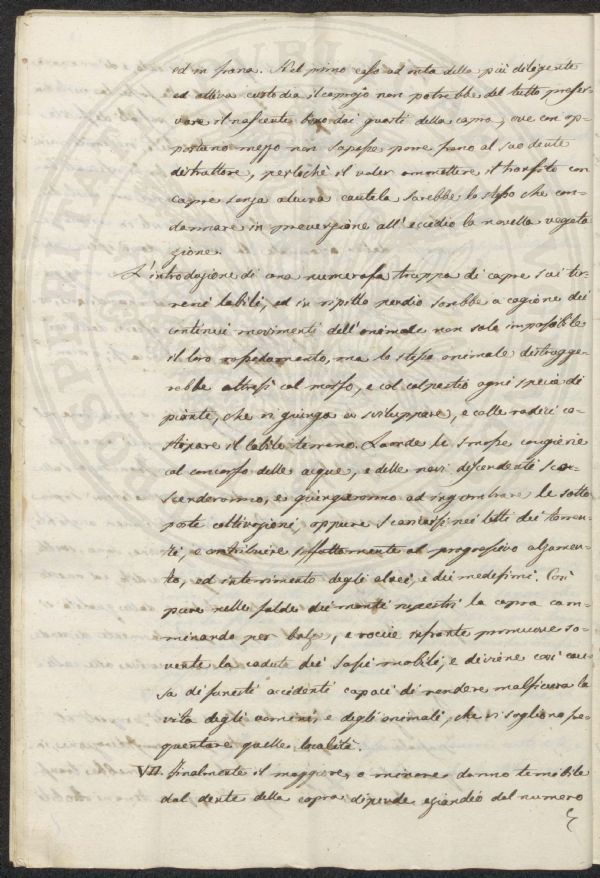 ed in frana. Nel primo caso ad onta della più diligente
ed attiva custodia il caprajo non potrebbe del tutto preser-
vare il nascente bosco dai guasti della capra, ove con op-
portuno mezzo non sapesse porre freno al suo dente
distruttore, perlochè il voler ammettere il transito con
capre senza alcuna cautela sarebbe lo stesso che con-
dannare in prevenzione all'eccidio la novella vegeta
zione.
L'introduzione di una numerosa truppa di capre sui ter-
reni labili, ed in ripido pendio sarebbe a cagione dei
continui movimenti dell'animale non solo impossibile
il loro rassodamento, ma lo stesso animale distrugge-
rebbe altresì col morso, e col calpestio ogni specie di
piante, che vi giunga a sviluppare, e colle radici co-
stipare il labile terreno. Laonde le smosse congerie
col concorso delle acque, e delle nevi discendenti sco-
scenderanno, e giungeranno ad ingombrare le sotto
poste coltivazioni, oppure scaricarsi nei letti dei torren-
ti, e contribuire siffattamente al progressivo alzamen-
to, ed interrimento degli alvei, e dei medesimi. Così
pure nelle falde dei monti rupestri la capra cam-
minando per balze, e roccie infrante promuove so-
vente la caduta dei sassi mobili, e diviene così cau-
sa di funesti accidenti capaci di rendere malsicura la
vita degli uomini, e degli animali, che vi sogliono fre-
quentare quelle località.
VII. Finalmente il maggiore, o minore danno temibile
dal dente della capra dipende eziandio dal numero